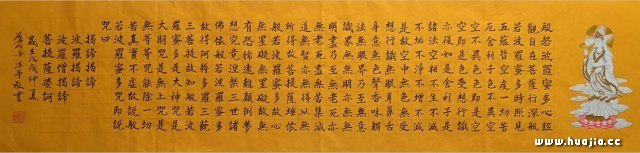 般若波羅蜜多心經
觀自在菩薩行深般
若波羅蜜多時照見
五蘊皆空度一切苦
厄舍利子色不異空
空不異色色即是空
空即是色受想行識
亦復如是舍利子是
諸法空相不生不滅
不垢不淨不增不減
是故空中無色無受
想行識無眼耳鼻舌
身意無色聲香味觸
法無眼界乃至無意
識界無無明亦無無
明盡乃至無老死亦
無老死盡無苦集滅
道無智亦無得以無
所得故菩提薩埵依
般若波羅蜜多故心
無罣礙無罣礙故無
有恐怖遠離顛倒夢
想究竟涅槃三世諸
佛依般若波羅蜜多
故得阿耨多羅三藐
三菩提故知般若波
羅蜜多是大神咒是
大明咒是無上咒是
無等等咒能除一切
苦真實不虛故說般
若波羅蜜多咒即說
咒曰
揭諦揭諦
波羅揭諦
波羅僧揭諦
菩提薩婆訶
戊戌仲夏
沐手敬書
www.huajia.cc